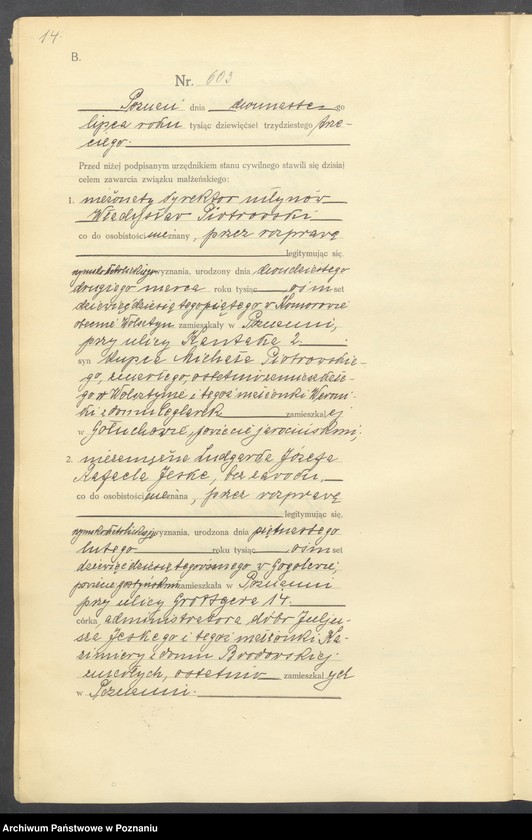 14.
B.
Nr. 603
Poznań dnia dwunaste-go
lipca roku tysiąc dziewięćset trzydziestego trze-
ciego.
Przed niżej podpisanym urzędnikiem stanu cywilnego stawili się dzisiaj
celem zawarcia związku małżeńskiego:
1. nieżonaty dyrektor młynów
Władysław Piotrowski
co do osobistości nieznany, przez rozprawę
legitymując się,
rzymskokatolickiego wyznania, urodzony dnia dwudziestego
drugiego marca roku tysiąc ośmset
dziewięćdziesiątego piątego w Komorowie
obecnie Wolsztyn zamieszkały w Poznaniu,
przy ulicy Kantaka 2.
syn kupca Michała Piotrowskie-
go, zmarłego, ostatnio zamieszkałe-
go w Wolsztynie i tegoż małżonki Weroni-
ki z domu Ceglarek zamieszkałej
w Gołuchowie, powiecie jarocińskim;
2. niezamężna Ludgarda Józefa
Rafaela Jeske, bez zawodu,
co do osobistości nieznana, przez rozprawę
legitymując się,
rzymskokatolickiego wyznania, urodzona dnia piętnastego
lutego roku tysiąc ośmset
dziewięćdziesiątego ósmego w Gogolewie,
powiecie gostyńskim zamieszkała w Poznaniu
przy ulicy Grottgera 14.
córka administratora dóbr Julju-
sza Jeskego i tegoż małżonki Ka-
zimiery z domu Brodowskiej
zmarłych, ostatnio zamieszkałych
w Poznaniu.
Archiwum Państwowe w Poznaniu